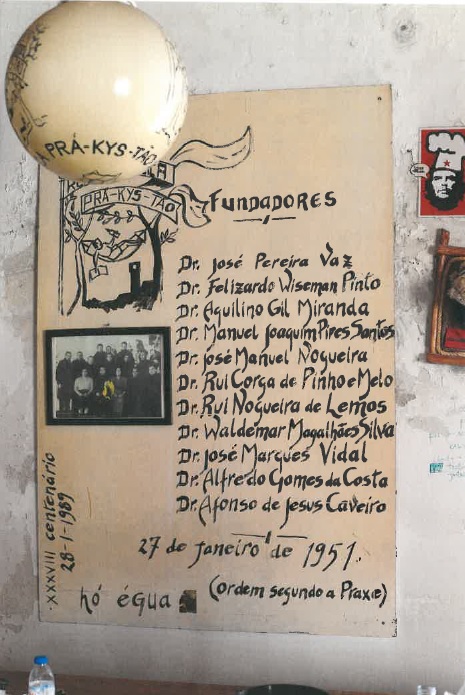 PRÁ-KYS-TÃO
PRÁ-KYS-TÃO
FUNDADORES
Dr. José Pereira Vaz
Dr. Felizardo Wiseman Pinto
Dr. Aquilino Gil Miranda
Dr. Manuel Joaquim Pires Santos
Dr. José Manuel Nogueira
Dr. Rui Corga de Pinho e Melo
Dr. Rui Nogueira de Lemos
Dr. Waldemar Magalhães Silva
Dr. José Marques Vidal
Dr. Alfredo Gomes da Costa
Dr. Afonso de Jesus Caveiro
27 de janeiro de 1951.
(ordem segundo a Praxe)
hó égua
XXXVIII centenário
28-1-1989